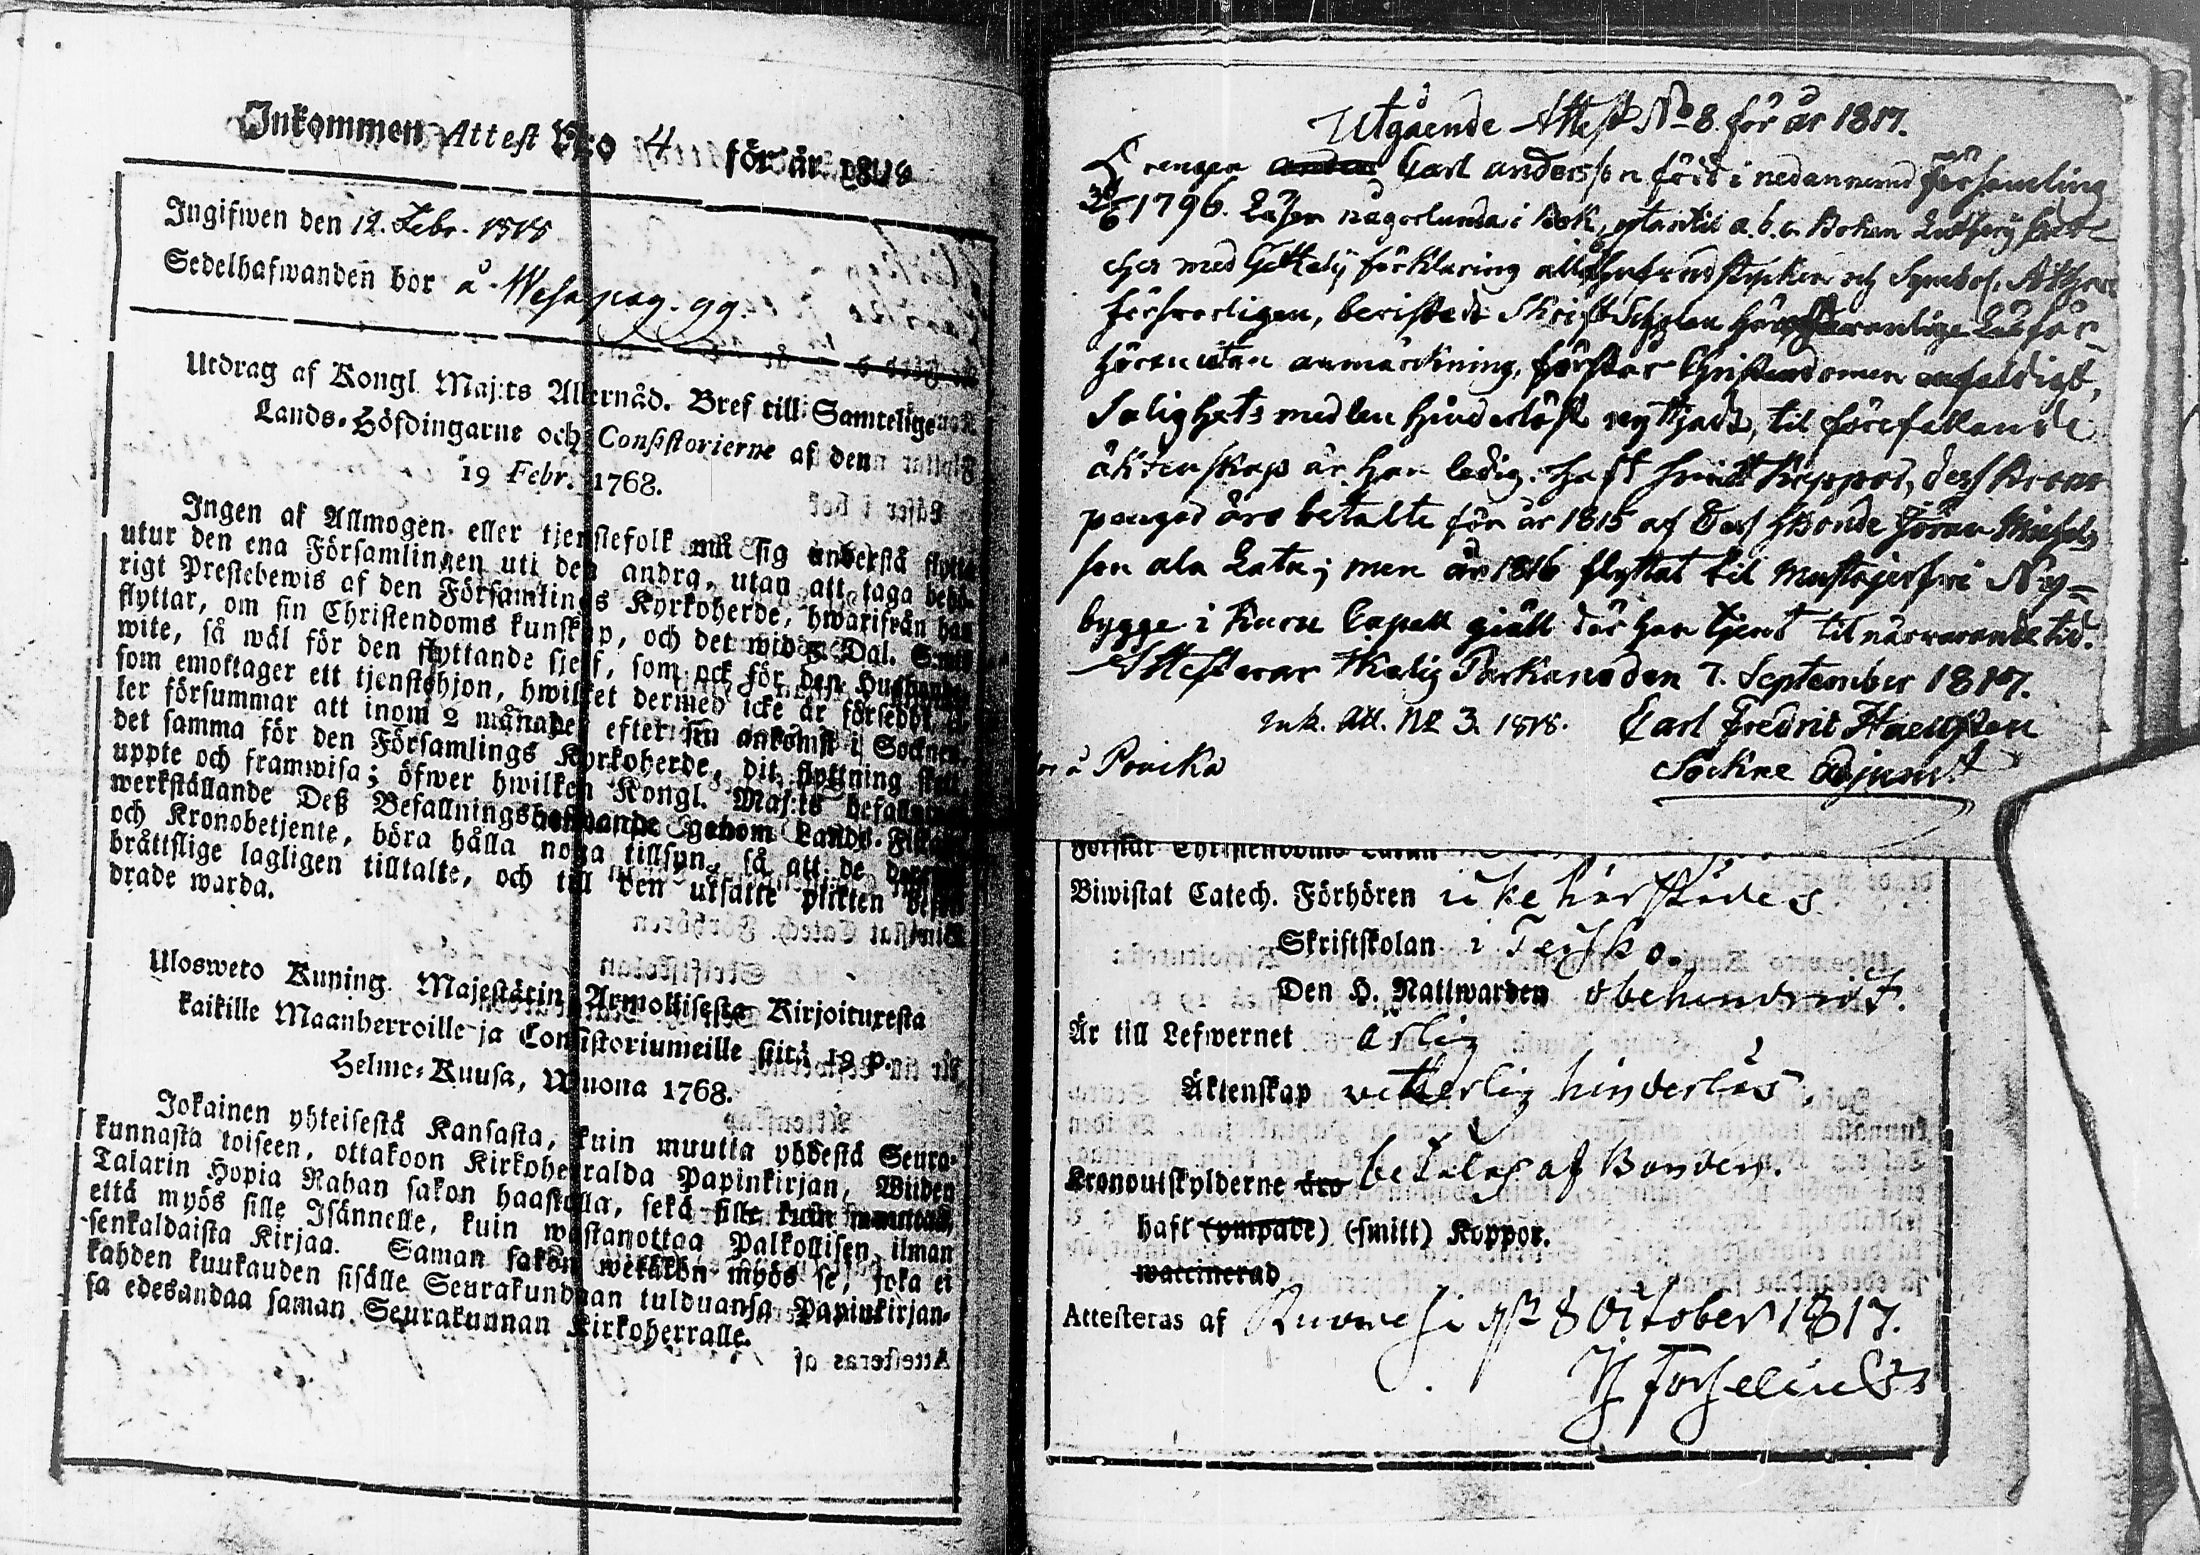 Inkommen Attest N:o 4 för år 1818
Ingifwen den 12. Febr. 1818
Sedelhafwanden bor å Wesa pag. 99.
Utdrag af Kongl. Maj:ts Allernåd. Bref till Samtelige
Lands-Höfdingarne och Consistorierne af den
19 Febr. 1768.
Ingen af Allmogen eller tjenstefolk må sig understå flytta
utur den ena Församlingen uti den andra, utan att taga behö-
rigt Prestebewis af den Församlings Kyrkoherde, hwarifrån han
flyttar, om sin Christendoms kunskap, och det wid 5 Dal. S:mts
wite, så wäl för den flyttande sjelf, som ock för den Husbonde,
som emottager ett tjenstehjon, hwilket dermed icke är försedt, el-
ler försummar att inom 2 månader efter sin ankomst i Socknen,
det samma för den Församlings Kyrkoherde, dit flyttning sker,
uppte och framwisa; öfwer hwilken Kongl. Maj:ts befallning
werkställande Deß Befallningshafwande genom Lands-Fiscaler
och Kronobetjente, böra hålla noga tillsyn, så att de
bråttslige lagligen tilltalte, och till den utsatte plikten
drade warda.
Ulosweto Kuning. Majestätin Armollisesta Kirjoituxesta
kaikille Maanherroille ja Consistoriumeille siitä 19 p.
Helme-Kuusa, Wuonna 1768.
Jokainen yhteisestä Kansasta, kuin muutta yhdestä Seura-
kunnasta toiseen, ottakoon Kirkoherralda Papinkirjan, Wiiden
Talarin Hopia Rahan sakon haastolla, sekä sille kuin muuttaa,
että myös sille Isännelle, kuin wastanottaa Palkollisen ilman
senkaldaista Kirjaa. Saman sakon wetäkön myös se, joka ei
kahden kuukauden sisälle Seurakundaan tulduansa Papinkirjan-
sa edesandaa saman Seurakunnan Kirkoherralle.
Utgående Attest No 8 för år 1817.
Drengen Carl Andersson född i nedannemnd Församling
1796. Läser någorlunda i bok, utantil a.b.c. Boken Lutheri
med förklaring
försvarligen, bevistat Skrift Scholan Läsför-
hören utan anmärkning, förstår Christendomen enfaldigt,
Salighets medlen hinderlöst nyttjadt, til förefallande
äktenskap är han ledig. haft smitt koppor, dess Krono
pengar äro betalte för år 1815 af Dess Husbonde Jöran Michels
son ala Lata; men år 1816 flyttat til Mustajerfvi Ny-
bygge i Kuru Capell gjäll där han tjent til närvarande tid.
Attesterar Parkano den 7. September 1817.
Ink. Att. No 3. 1818. Carl Fredric Haeggsten
å Pouska Sockne Adjunct
Förstår Christendoms Läran
Biwistat Catech. Förhören icke härstädes
Skriftskolan i Teisko.
Den H. Nattwarden obehindrat.
Är till Lefwernet ärlig
Äktenskap veterlig hinderlös.
Kronoutskylderne äro betalas af Bonden.
haft (ympade) (smitt) Koppor.
waccinerad
Attesteras af Ruovesi Pst 8 October 1817.